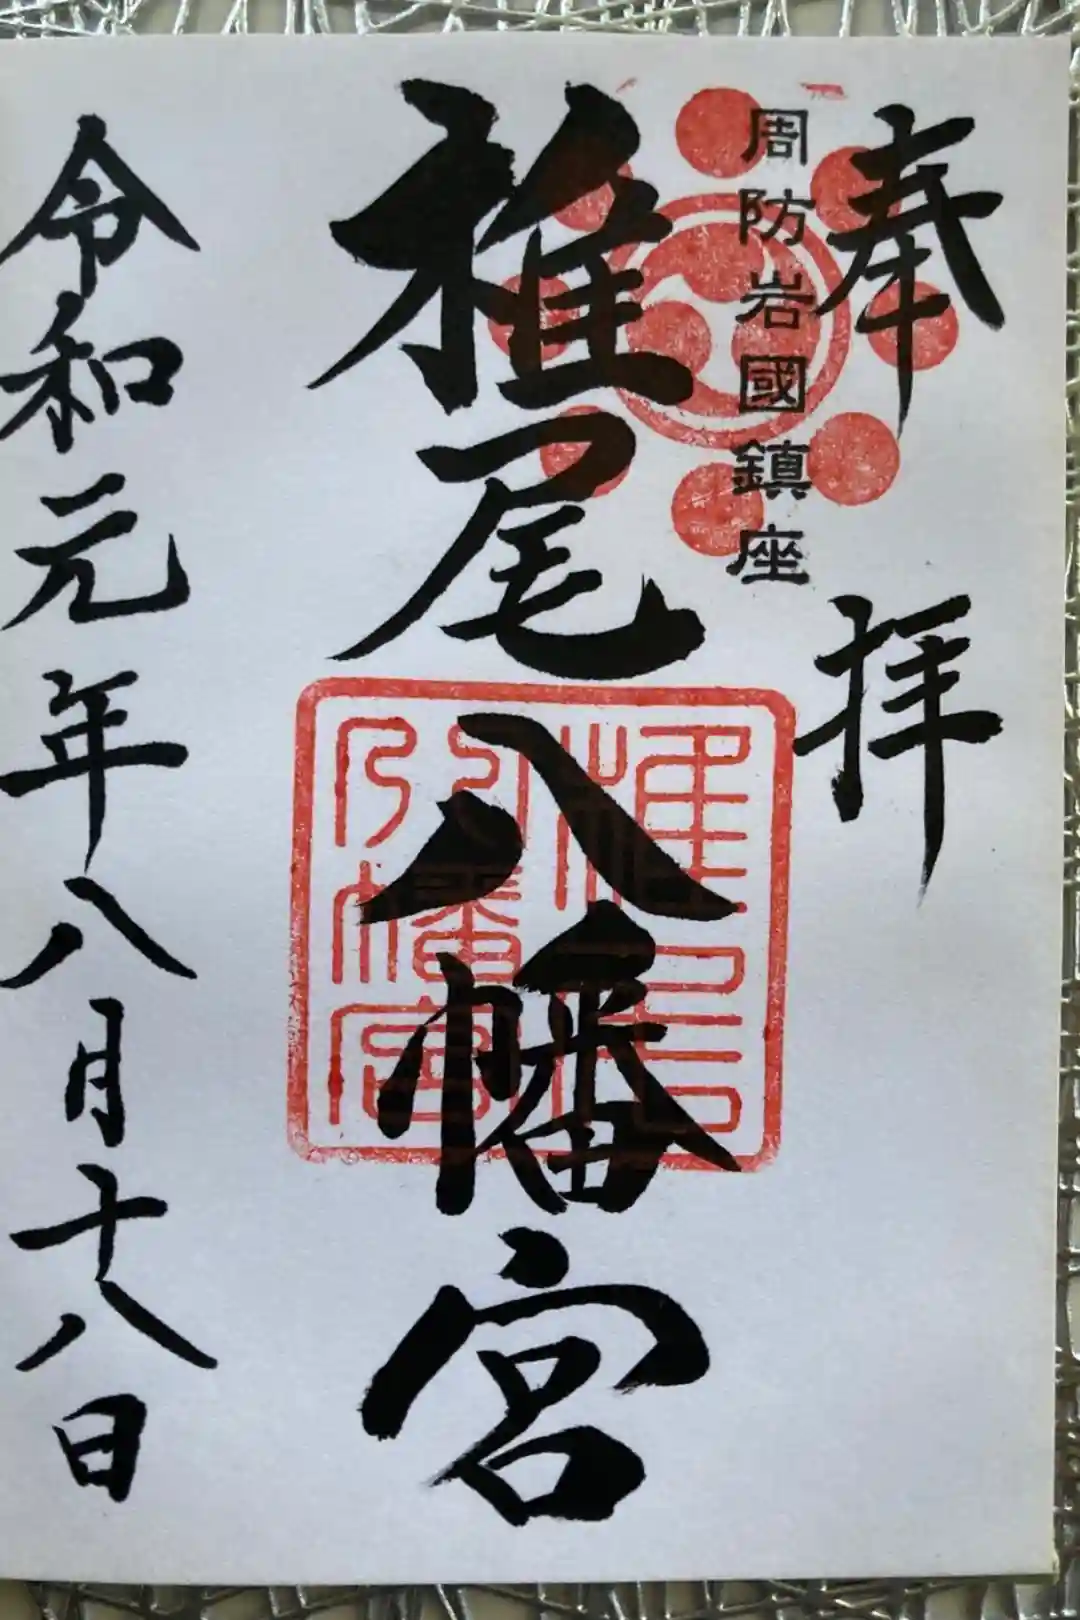 奉拝
周防岩國鎮座
椎尾八幡宮
椎尾
八幡宮
令和元年八月十八日